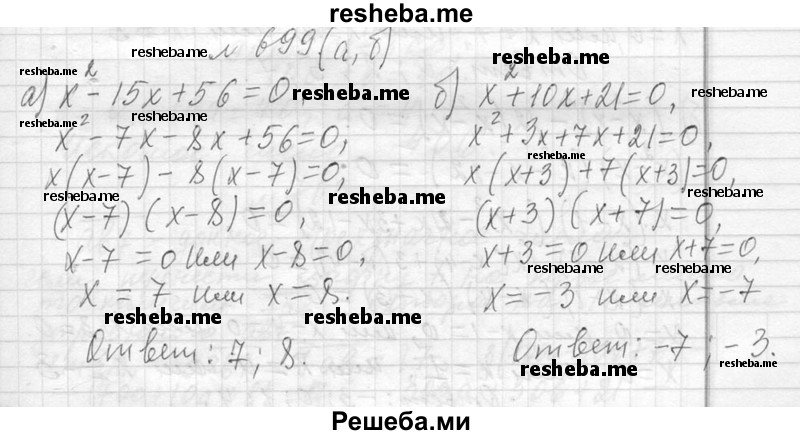 resheba.me
resheba.me
№ 699(а,б)
resheba.me
resheba.me
а) x² - 15x + 56 = 0,
resheba.me
б) x² + 10x + 21 = 0,
resheba.me
resheba.me
resheba.me
x² - 7x - 8x + 56 = 0;
x² + 3x + 7x + 21 = 0,
resheba.me
x(x-7) - 8(x-7) = 0;
x(x+3) + 7(x+3) = 0,
resheba.me
resheba.me
resheba.me
(x-7)(x-8) = 0,
(x+3)(x+7) = 0,
x-7 = 0 или x-8 = 0,
x+3 = 0 или x+7 = 0,
resheba.me
resheba.me
x = 7 или x = 8.
x = -3 или x = -7
resheba.me
resheba.me
Ответ: 7; 8.
Ответ: -7; -3.
resheba.me
resheba.me
Решеба.ми